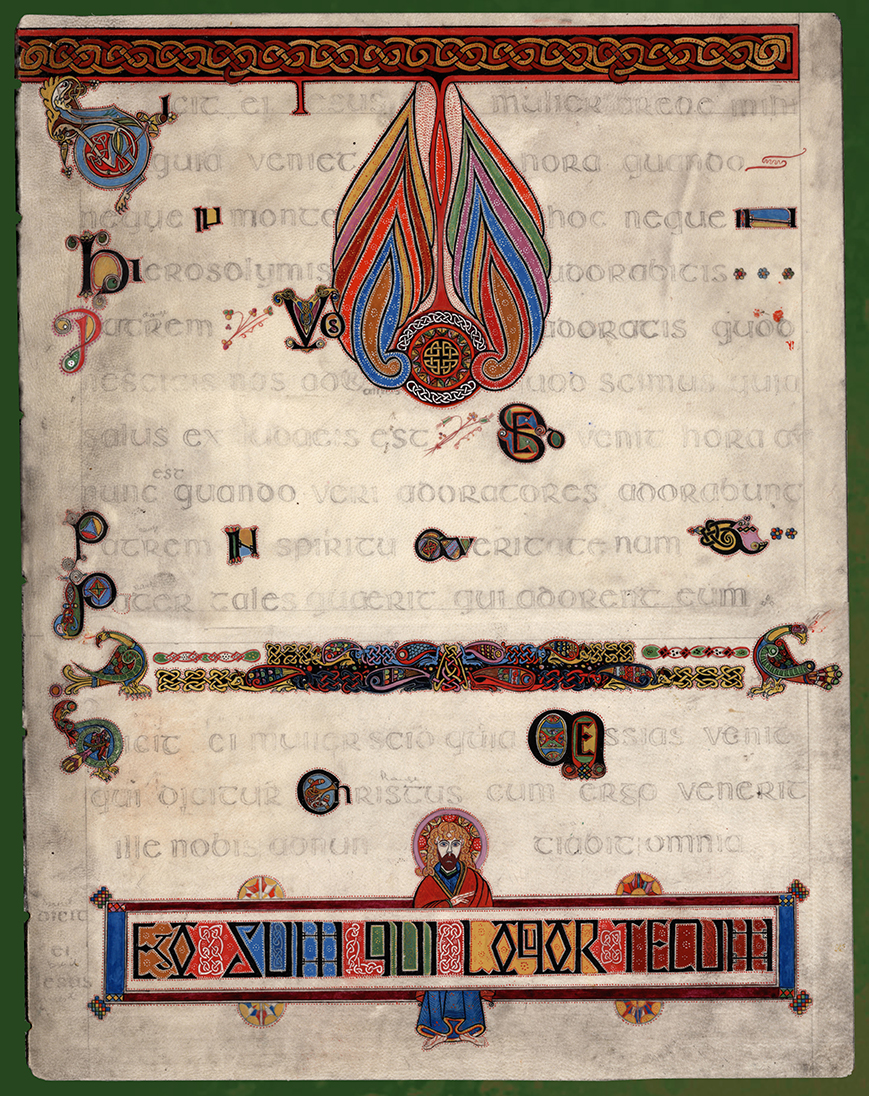 Dicit ei Iesus mulier crede mihi
quia veniet hora quando
neque in monte hoc neque in
hierosolymis adorabitis
Patrem Vos adoratis quod
nescitis nos quod scimus quia
salus ex Iudaeis est Sed venit hora et
est
nunc quando veri adoratores adorabunt
Patrem in spiritu et veritate nam et
Pater tales quaerit qui adorent eum
Dicit ei mulier scio quia Messias venit
qui dicitur Christus cum ergo venerit
ille nobis adnun tiabit omnia
dicit
ei
iesus
EGO SUM QUI LOQUOR TECUM